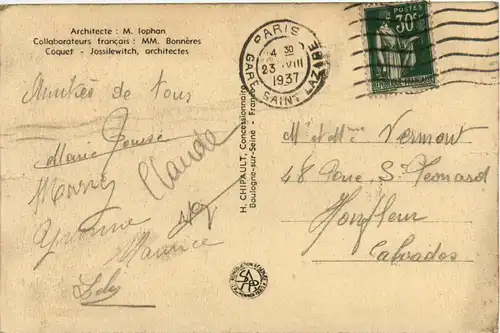 Architecte : M. Iophan
Collaborateurs français : MM. Bonnères
Coquet - Jossilewitch, architectes
Amitiés de tous
Marie Louise
Claude
Yvonne
Maurice
H. CHIPAULT, Concessionnaire
Boulogne-sur-Seine - France
PARIS
4 30
23 VIII
1937
GARE SAINT LAZARE
POSTES
30c
Mr et Mme Vermont
48 Rue St Léonard
Honfleur
Calvados